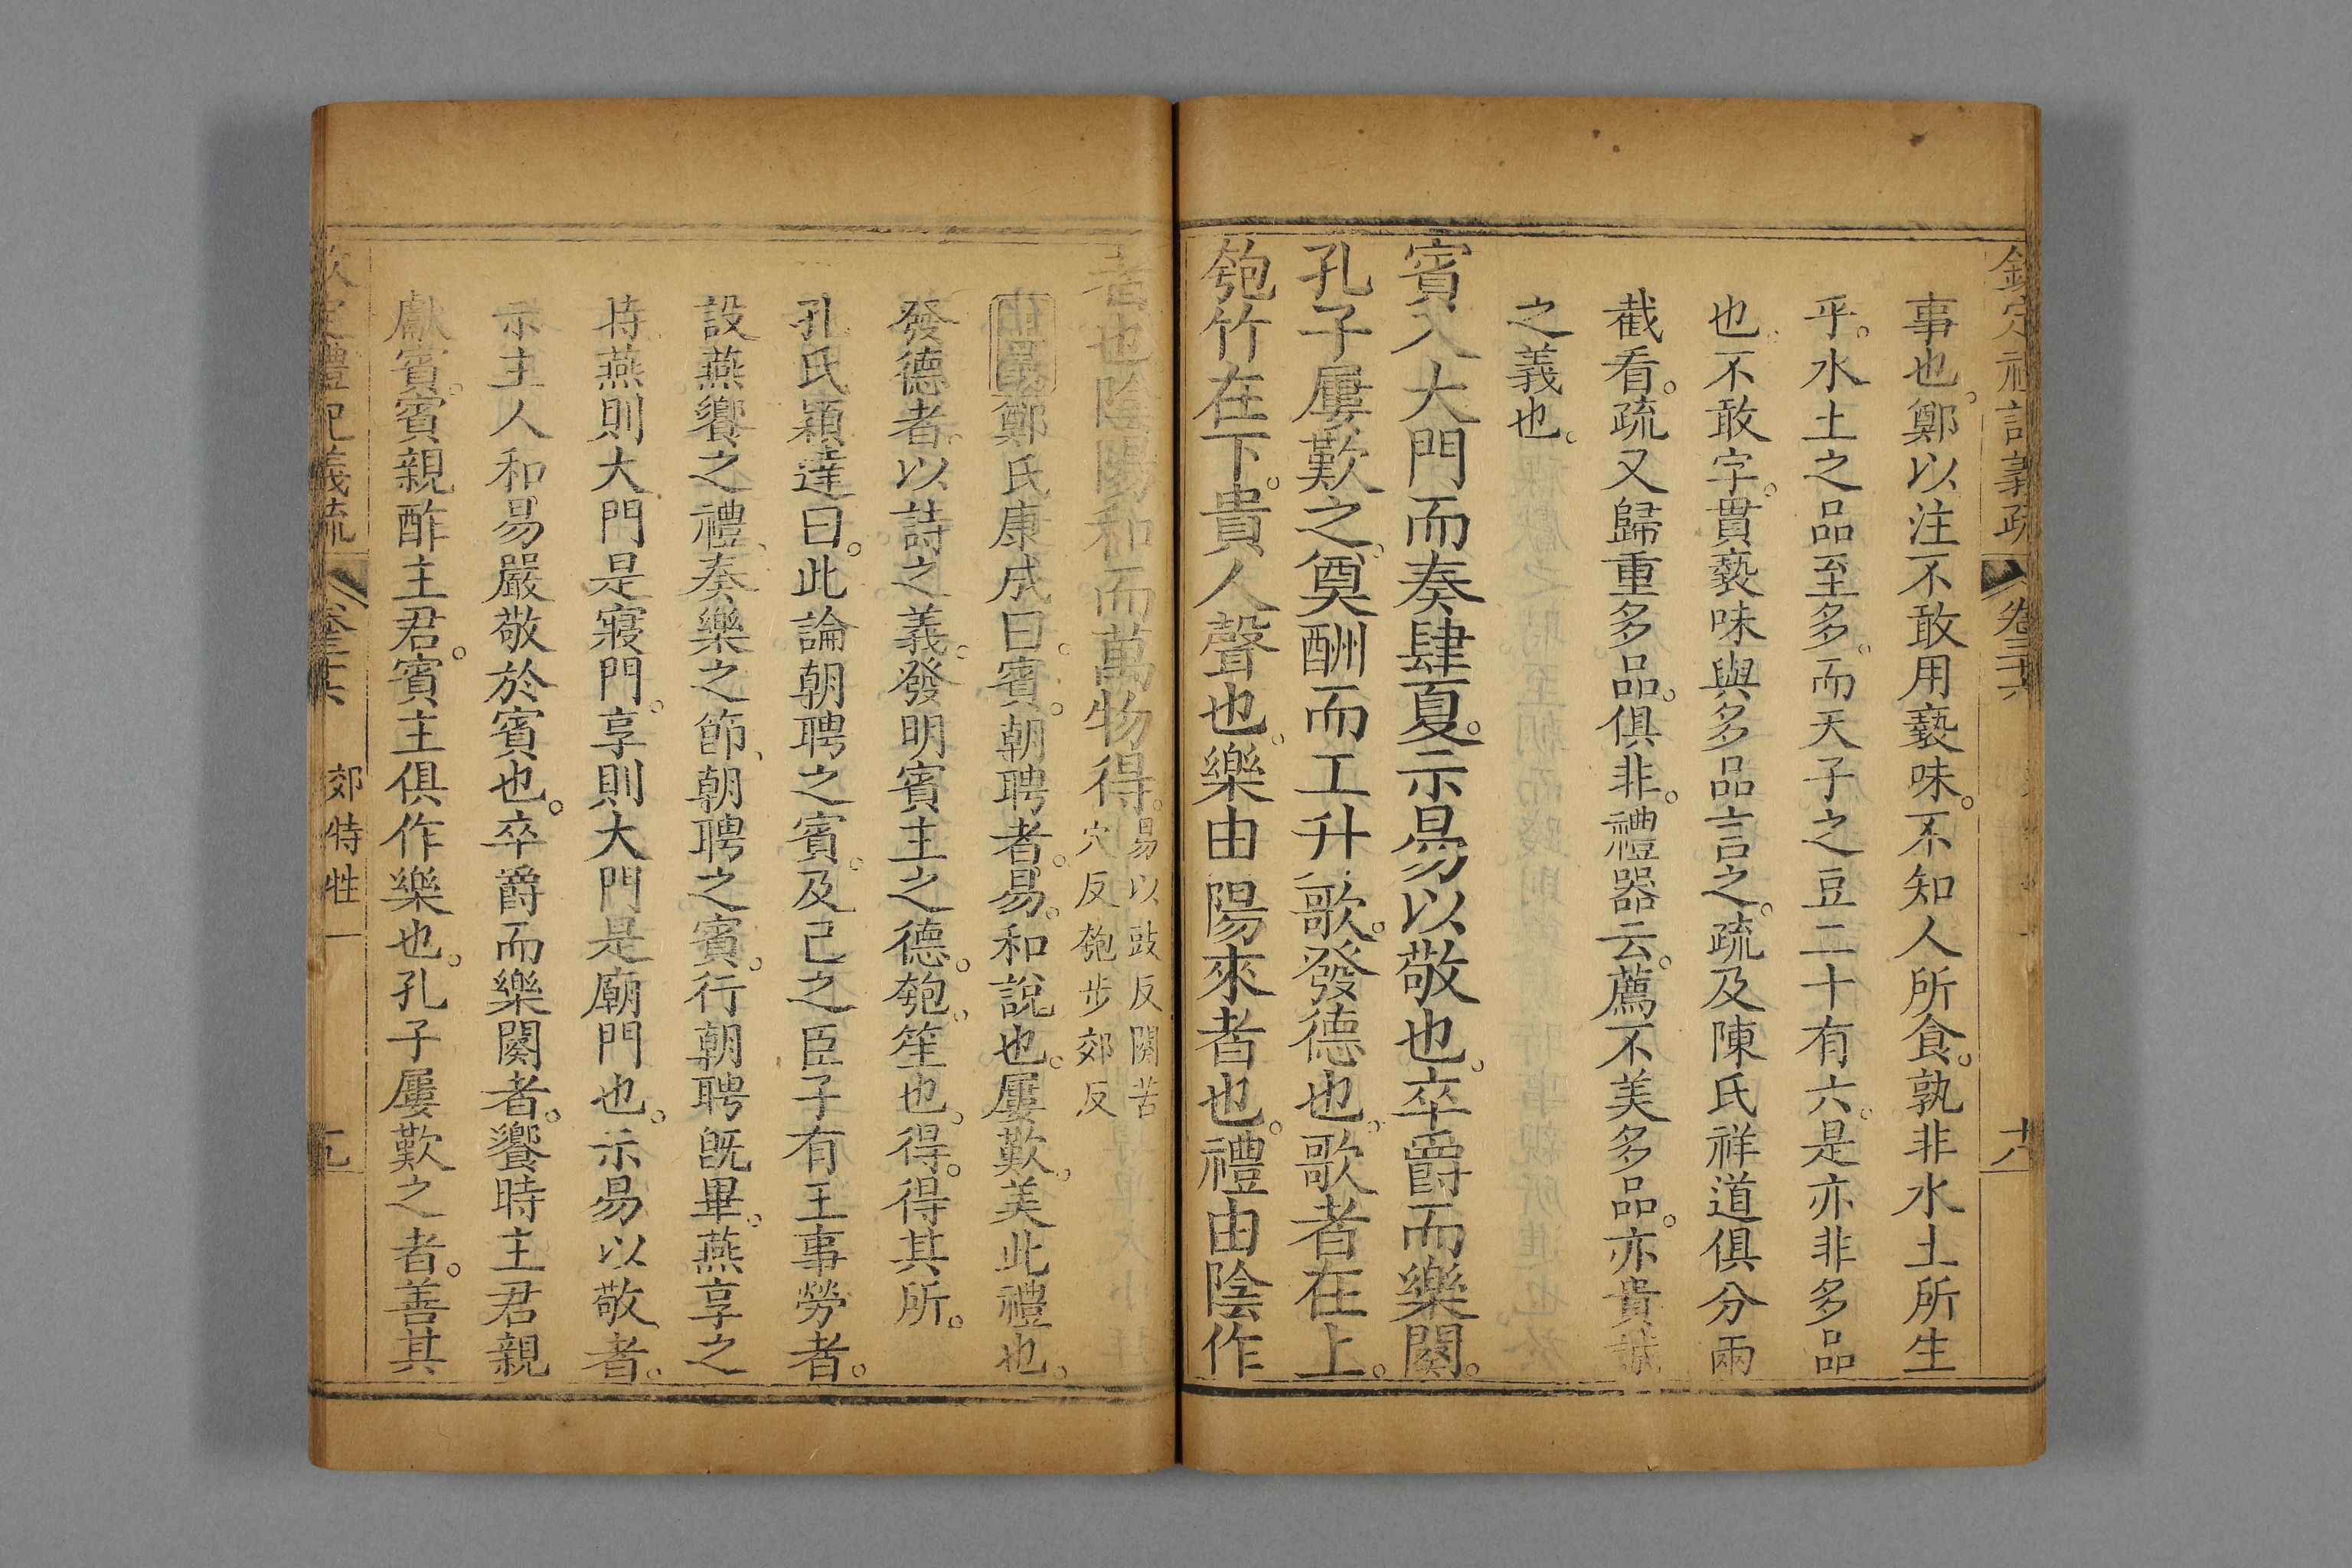 欽定禮記義疏 卷三十六 十八
事也。鄭以注不敢用䙝味。不知人所食。孰非水土所生
乎。水土之品至多。而天子之豆二十有六。是亦非多品
也。不敢字。貫䙝味與多品言之。疏及陳氏祥道俱分兩
截看。疏又歸重多品。俱非。禮器云。薦不美多品。亦貴誠
之義也。
賓入大門而奏肆夏。示易以敬也。卒爵而樂闋。
孔子屢歎之。奠酬而工升歌。發德也。歌者在上。
匏竹在下。貴人聲也。樂由陽來者也。禮由陰作
者也。陰陽和而萬物得。易以豉反闋苦
穴反匏步郊反
鄭氏康成曰。賓。朝聘者。易。和說也。屢歎。美此禮也。
發德者。以詩之義。發明賓主之德。匏。笙也。得。得其所。
孔氏穎達曰。此論朝聘之賓。及己之臣子有王事勞者。
設燕饗之禮、奏樂之節、朝聘之賓。行朝聘既畢。燕享之
時燕則大門是寢門。享則大門是廟門也。示易以敬者。
示主人和易嚴敬於賓也。卒爵而樂闋者。饗時主君親
獻賓。賓親酢主君。賓主俱作樂也。孔子屢歎之者。善其
欽定禮記義疏 卷三十六 郊特牲一